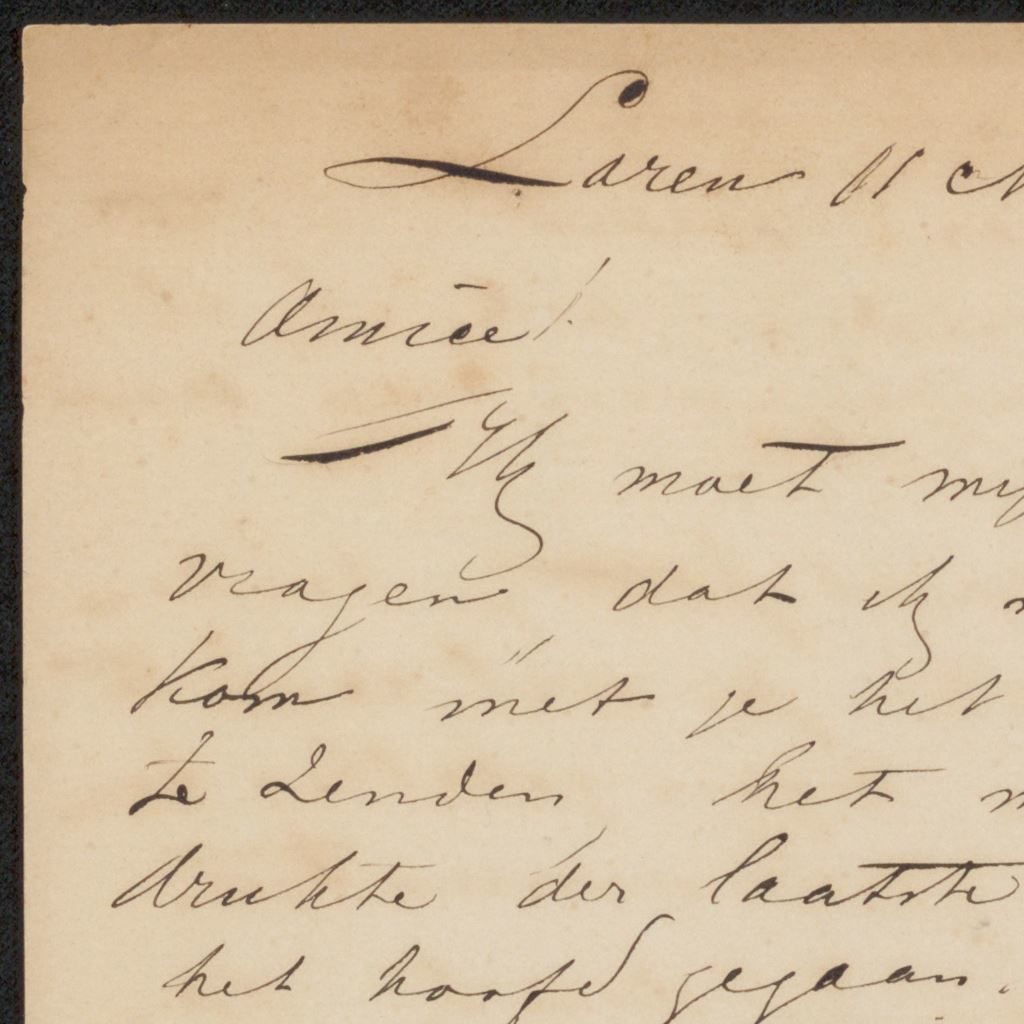 Laren 11
Amice!
Ik moet
vragen dat ik
kom met je het
te zenden, het
drukte der laatste
het hoofd gegaan.